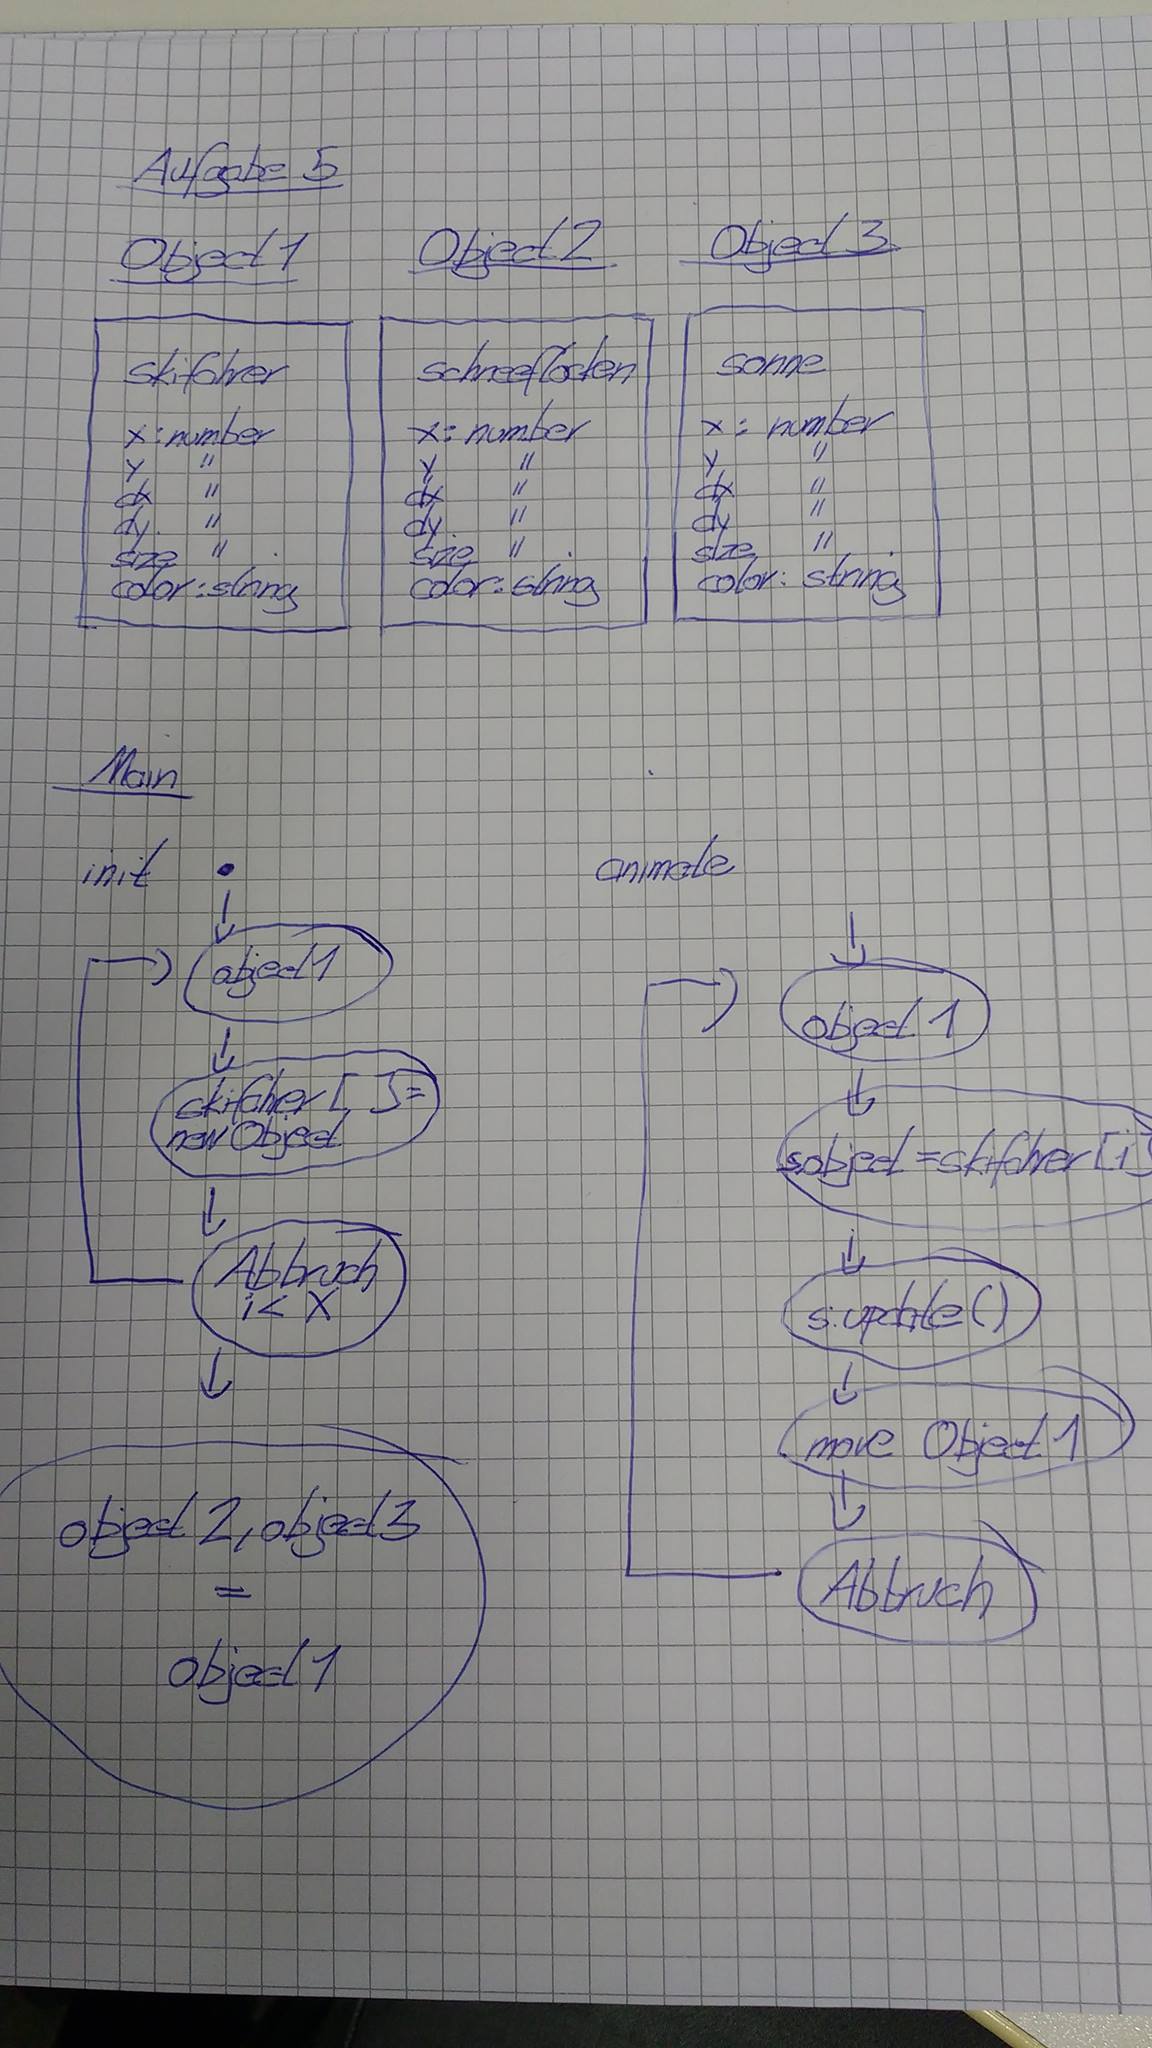 Aufgabe 5
Object 1
Object 2
Object 3
skifahrer
x: number
y "
dx "
dy "
size "
color: string
schneeflocken
x: number
y "
dx "
dy "
size "
color: string
sonne
x: number
y "
dx "
dy "
size "
color: string
Main
init
object 1
skifahrer [ ] =
new Object
Abbruch
i < X
object 2, object 3
=
object 1
animate
object 1
sobject = skifahrer [i]
s.update()
move Object 1
Abbruch